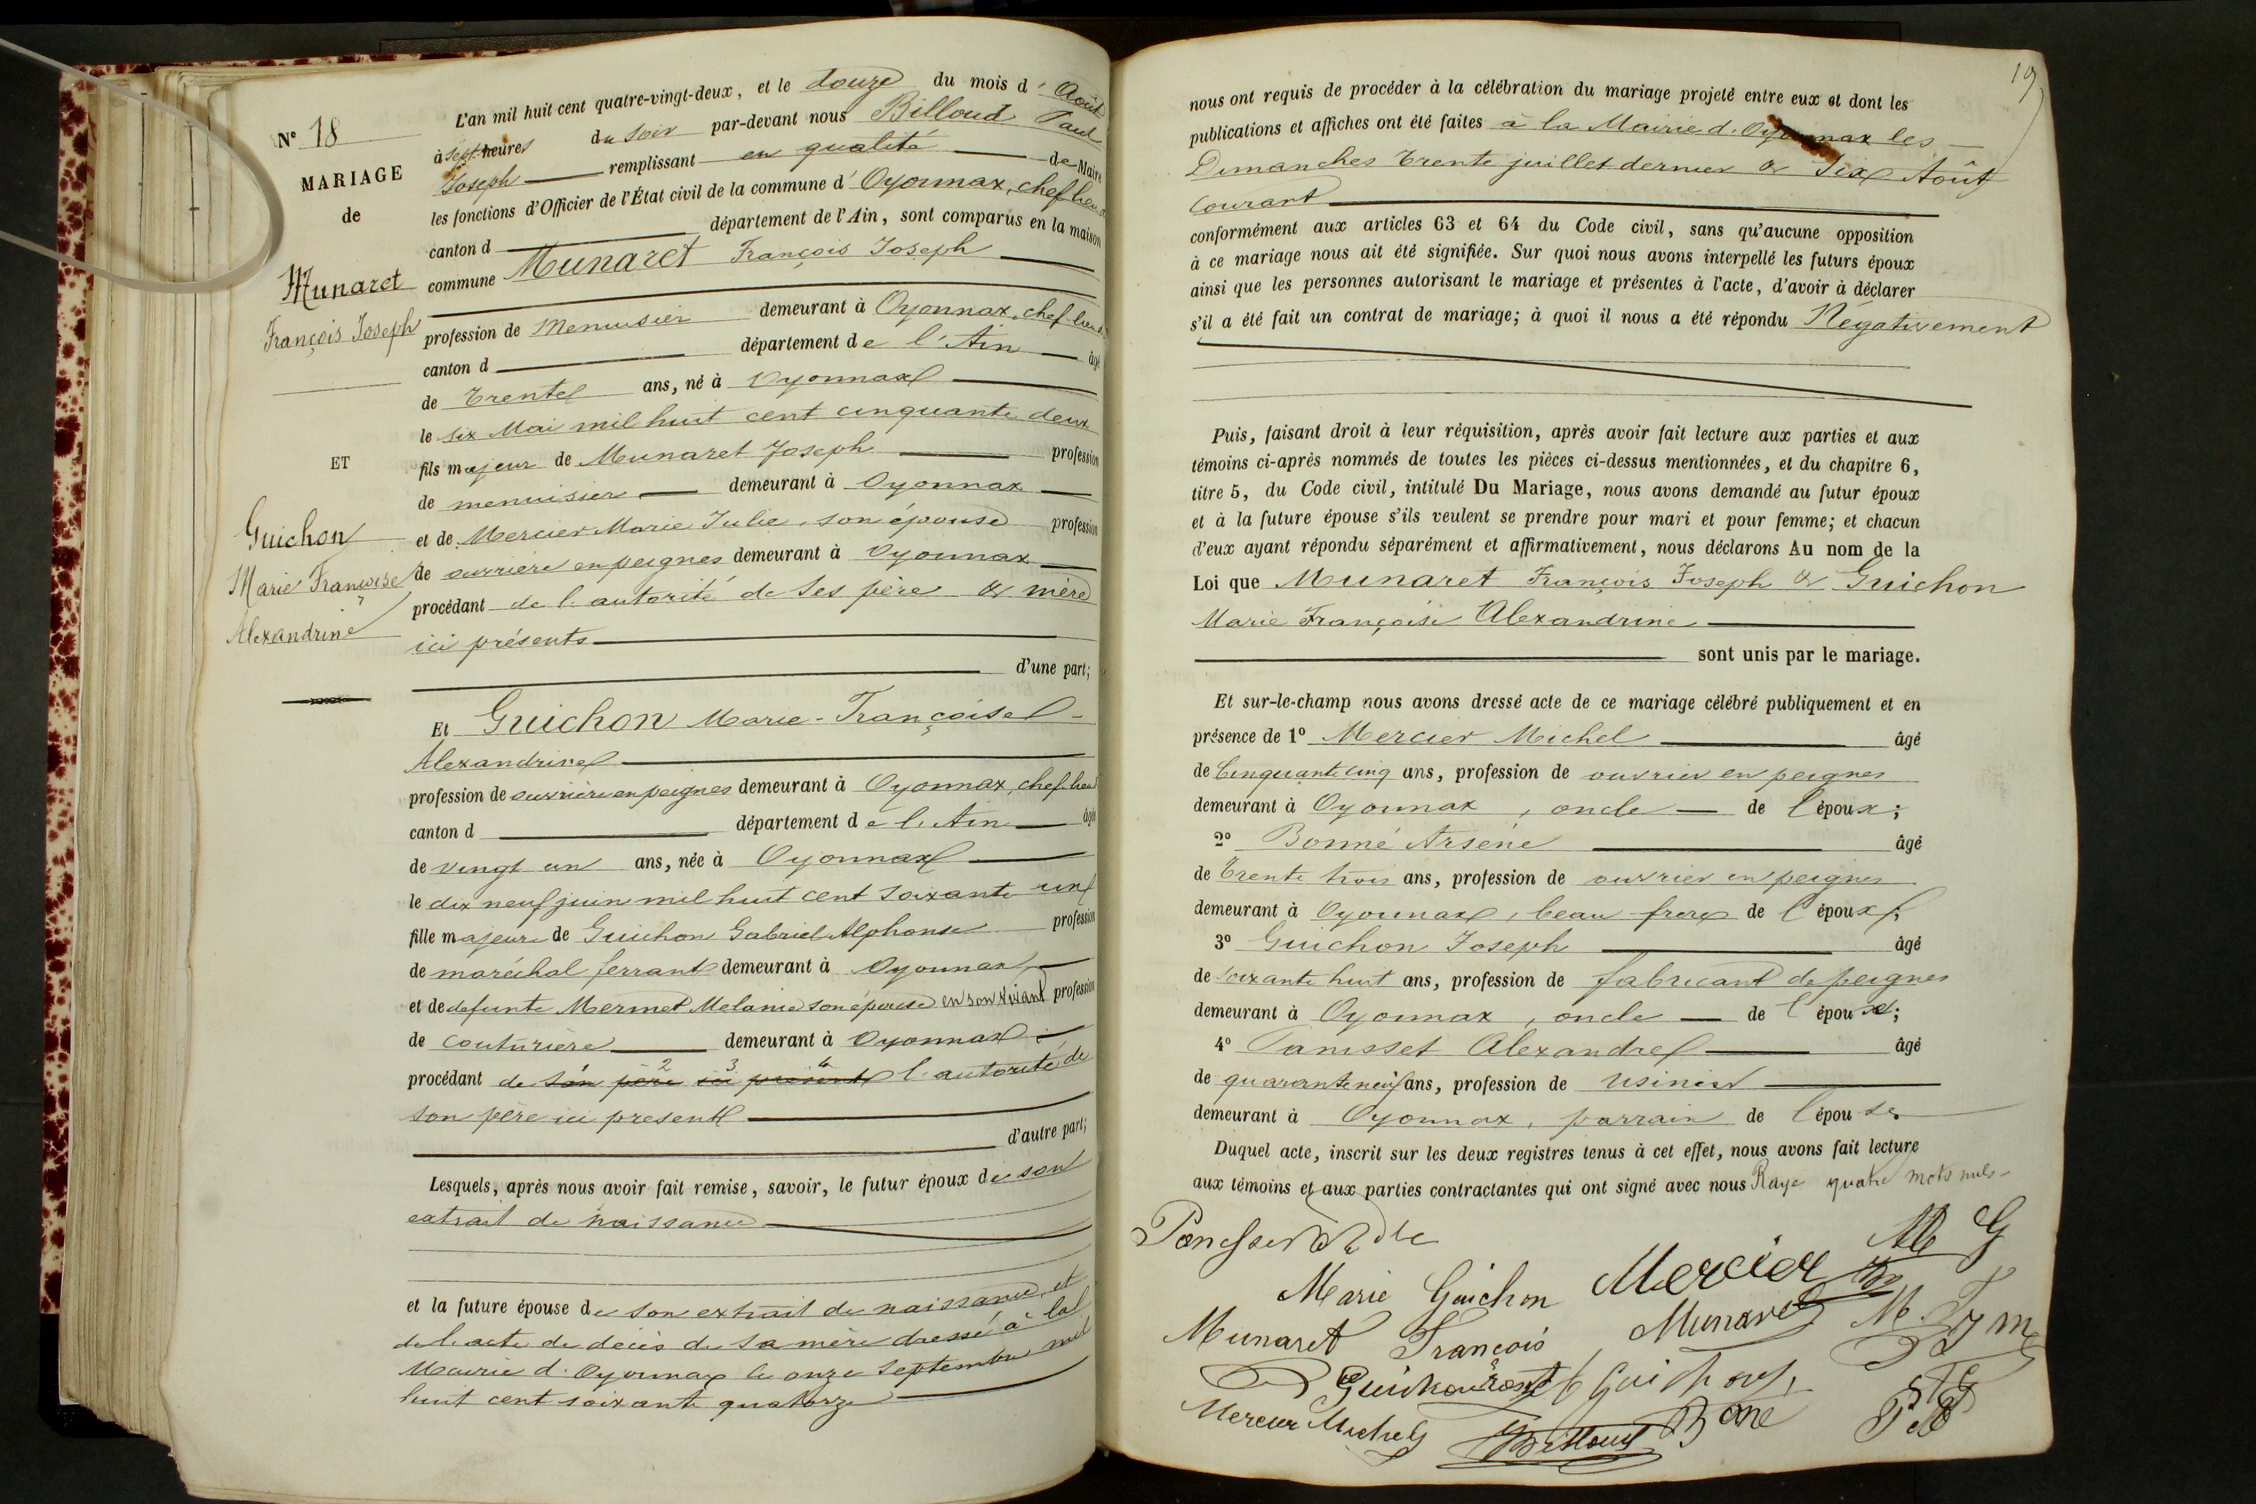 N° 18
MARIAGE
de
Munaret
François Joseph
ET
Guichon
Marie Françoise
Alexandrine
L'an mil huit cent quatre-vingt-deux, et le douze du mois d' Août
à sept heures du soir par-devant nous Billoud Paul
Joseph remplissant en qualité de Maire
les fonctions d'Officier de l'État civil de la commune d' Oyonnax, chef lieu de
canton d département de l'Ain, sont comparus en la maison
commune Munaret François Joseph
profession de Menuisier demeurant à Oyonnax, chef lieu de
canton d département de l'Ain âgé
de Trente ans, né à Oyonnax
le six Mai mil huit cent cinquante deux
fils majeur de Munaret Joseph profession
de menuisier demeurant à Oyonnax
et de Mercier Marie Julie, son épouse profession
de ouvrière en peignes demeurant à Oyonnax
procédant de l'autorité de ses père & mère
ici présents
d'une part;
Et Guichon Marie-Françoise
Alexandrine
profession de ouvrière en peignes demeurant à Oyonnax, chef lieu
canton d département de l'Ain âgée
de vingt un ans, née à Oyonnax
le dix neuf juin mil huit cent soixante un
fille majeure de Guichon Gabriel Alphonse profession
de maréchal ferrant demeurant à Oyonnax
et de defunte Mermet Melanie son épouse en son vivant profession
de couturière demeurant à Oyonnax
2 3 4
procédant de son père ici présent l'autorité de
son père ici present
d'autre part;
Lesquels, après nous avoir fait remise, savoir, le futur époux de son
extrait de naissance
et la future épouse de son extrait de naissance et
de l'acte de décès de sa mère dressé à la
Mairie d'Oyonnax le onze septembre mil
huit cent soixante quatorze
19
nous ont requis de procéder à la célébration du mariage projeté entre eux et dont les
publications et affiches ont été faites à la Mairie d'Oyonnax les
Dimanches Trente juillet dernier & Six Août
courant
conformément aux articles 63 et 64 du Code civil, sans qu'aucune opposition
à ce mariage nous ait été signifiée. Sur quoi nous avons interpellé les futurs époux
ainsi que les personnes autorisant le mariage et présentes à l'acte, d'avoir à déclarer
s'il a été fait un contrat de mariage; à quoi il nous a été répondu Négativement
Puis, faisant droit à leur réquisition, après avoir fait lecture aux parties et aux
témoins ci-après nommés de toutes les pièces ci-dessus mentionnées, et du chapitre 6,
titre 5, du Code civil, intitulé Du Mariage, nous avons demandé au futur époux
et à la future épouse s'ils veulent se prendre pour mari et pour femme; et chacun
d'eux ayant répondu séparément et affirmativement, nous déclarons Au nom de la
Loi que Munaret François Joseph & Guichon
Marie Françoise Alexandrine
sont unis par le mariage.
Et sur-le-champ nous avons dressé acte de ce mariage célébré publiquement et en
présence de 1° Mercier Michel âgé
de Cinquante cinq ans, profession de ouvrier en peignes
demeurant à Oyonnax, oncle de l'époux;
2° Bonné Arsène âgé
de Trente trois ans, profession de ouvrier en peignes
demeurant à Oyonnax, beau frère de l'époux;
3° Guichon Joseph âgé
de soixante huit ans, profession de fabricant de peignes
demeurant à Oyonnax, oncle de l'épouse;
4° Panisset Alexandre âgé
de quarante neuf ans, profession de usinier
demeurant à Oyonnax, parrain de l'épouse.
Duquel acte, inscrit sur les deux registres tenus à cet effet, nous avons fait lecture
aux témoins et aux parties contractantes qui ont signé avec nous Raye quatre mots nuls
Marie Guichon Mercier
Munaret François Munaret
Guichon
Mercier Michel Billoud Bone